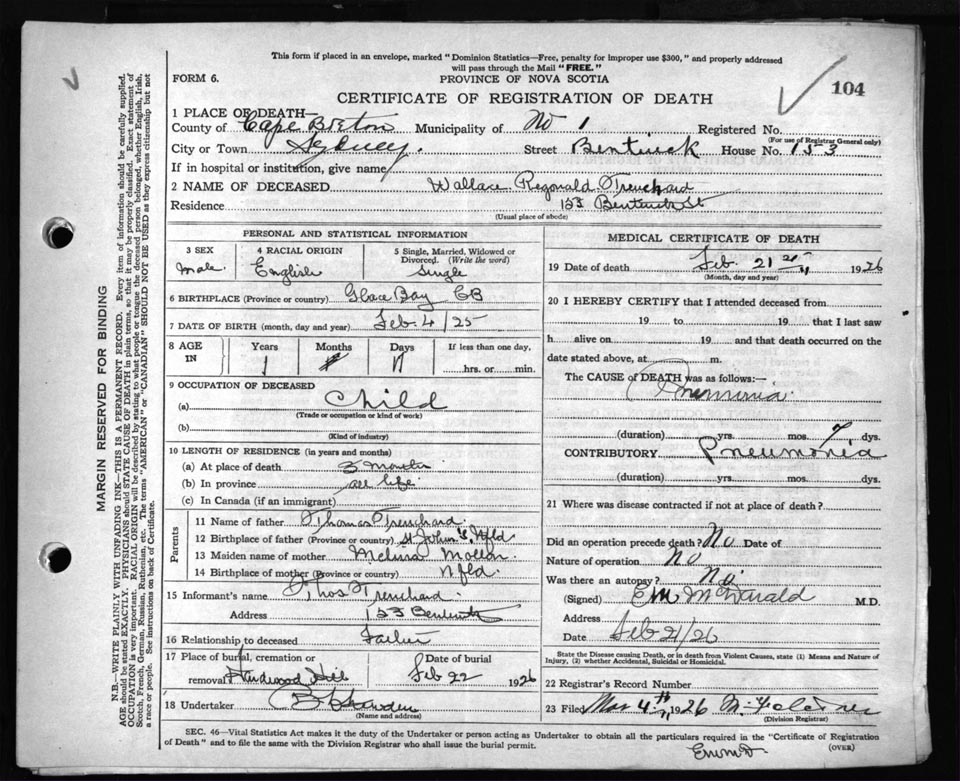 This form if placed in an envelope, marked "Dominion Statistics—Free, penalty for improper use $300," and properly addressed
will pass through the Mail "FREE."
FORM 6.
PROVINCE OF NOVA SCOTIA
104
CERTIFICATE OF REGISTRATION OF DEATH
1 PLACE OF DEATH—
County of Cape Breton Municipality of No 1 Registered No.
(For use of Registrar General only)
City or Town Sydney. Street Bentinck House No. 153
If in hospital or institution, give name
2 NAME OF DECEASED Wallace Reginald Trenchard
Residence 153 Bentinck St
(Usual place of abode)
PERSONAL AND STATISTICAL INFORMATION
3 SEX
male.
4 RACIAL ORIGIN
English
5 Single, Married, Widowed or
Divorced. (Write the word)
Single
6 BIRTHPLACE (Province or country) Glace Bay CB
7 DATE OF BIRTH (month, day and year) Feb. 4/25
8 AGE IN
Years 1
Months
Days 17
If less than one day,
hrs. or min.
9 OCCUPATION OF DECEASED
(a) Child
(Trade or occupation or kind of work)
(b)
(Kind of industry)
10 LENGTH OF RESIDENCE (in years and months)
(a) At place of death 3 months
(b) In province all life
(c) In Canada (if an immigrant)
Parents
11 Name of father Thomas Trenchard.
12 Birthplace of father (Province or country) St John's, Nfld
13 Maiden name of mother Melina
14 Birthplace of mother (Province or country) Nfld.
15 Informant's name Thos Trenchard.
Address 153 Bentinck
16 Relationship to deceased Father
17 Place of burial, cremation or
removal Hardwood Hill
Date of burial
Feb 22 1926
18 Undertaker
(Name and address)
MEDICAL CERTIFICATE OF DEATH
19 Date of death Feb. 21 21st 1926
(Month, day and year)
20 I HEREBY CERTIFY that I attended deceased from
19 to 19 that I last saw
h alive on 19 and that death occurred on the
date stated above, at m.
The CAUSE of DEATH was as follows:—
Pneumonia.
(duration) yrs. mos. 7 dys.
CONTRIBUTORY Pneumonia
(duration) yrs. mos. dys.
21 Where was disease contracted if not at place of death?
Did an operation precede death? No Date of
Nature of operation No
Was there an autopsy? No.
(Signed) EM McDonald M.D.
Address
Date Feb 21/26
State the Disease causing Death, or in death from Violent Causes, state (1) Means and Nature of
Injury, (2) whether Accidental, Suicidal or Homicidal.
22 Registrar's Record Number
23 Filed Mar 4th 1926
(Division Registrar)
SEC. 46—Vital Statistics Act makes it the duty of the Undertaker or person acting as Undertaker to obtain all the particulars required in the "Certificate of Registration
of Death" and to file the same with the Division Registrar who shall issue the burial permit.
(OVER)
MARGIN RESERVED FOR BINDING
N.B.—WRITE PLAINLY WITH UNFADING INK—THIS IS A PERMANENT RECORD. Every item of information should be carefully supplied.
AGE should be stated EXACTLY. PHYSICIANS should STATE CAUSE OF DEATH in plain terms, so that it may be properly classified. Exact statement of
OCCUPATION is very important. RACIAL ORIGIN will be described by stating to what people or tongue the deceased person belonged, whether English, Irish,
Scotch, French, German, Russian, Ruthenian, etc. The terms "AMERICAN" or "CANADIAN" SHOULD NOT BE USED as they express citizenship but not
a race or people. See instructions on back of Certificate.